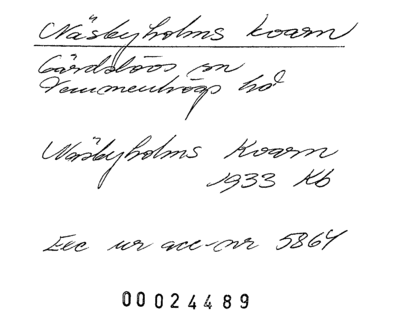 Näsbyholms kvarn
Gärdslövs sn
Vemmenhögs hd
Näsbyholms Kvarn
1933 Kb
Exc ur acc-nr 5864
00024489